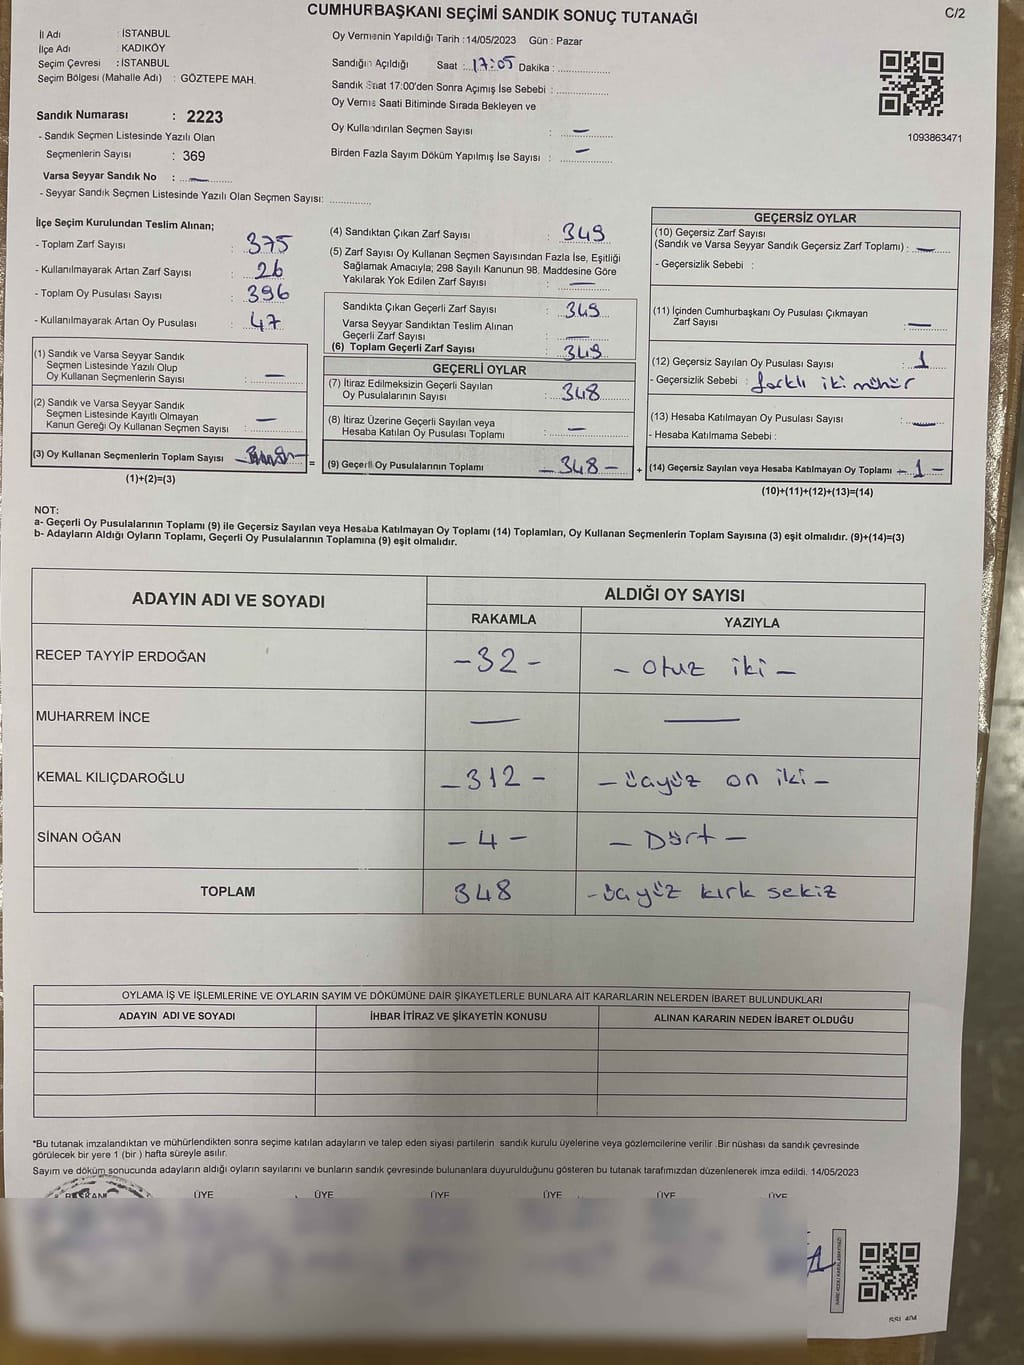 CUMHURBAŞKANI SEÇİMİ SANDIK SONUÇ TUTANAĞI
C/2
İl Adı : İSTANBUL
İlçe Adı : KADIKÖY
Seçim Çevresi : İSTANBUL
Seçim Bölgesi (Mahalle Adı) : GÖZTEPE MAH.
Sandık Numarası : 2223
- Sandık Seçmen Listesinde Yazılı Olan
Seçmenlerin Sayısı : 369
Varsa Seyyar Sandık No : —
- Seyyar Sandık Seçmen Listesinde Yazılı Olan Seçmen Sayısı:
Oy Vermenin Yapıldığı Tarih :14/05/2023 Gün : Pazar
Sandığın Açıldığı Saat : 17:05 Dakika :
Sandık Saat 17:00'den Sonra Açımış İse Sebebi :
Oy Verme Saati Bitiminde Sırada Bekleyen ve
Oy Kullandırılan Seçmen Sayısı : —
Birden Fazla Sayım Döküm Yapılmış İse Sayısı : —
1093863471
İlçe Seçim Kurulundan Teslim Alınan;
- Toplam Zarf Sayısı : 375
- Kullanılmayarak Artan Zarf Sayısı : 26
- Toplam Oy Pusulası Sayısı : 396
- Kullanılmayarak Artan Oy Pusulası : 47
(1) Sandık ve Varsa Seyyar Sandık
Seçmen Listesinde Yazılı Olup
Oy Kullanan Seçmenlerin Sayısı : —
(2) Sandık ve Varsa Seyyar Sandık
Seçmen Listesinde Kayıtlı Olmayan
Kanun Gereği Oy Kullanan Seçmen Sayısı : —
(3) Oy Kullanan Seçmenlerin Toplam Sayısı
(1)+(2)=(3)
(4) Sandıktan Çıkan Zarf Sayısı : 349
(5) Zarf Sayısı Oy Kullanan Seçmen Sayısından Fazla İse, Eşitliği
Sağlamak Amacıyla; 298 Sayılı Kanunun 98. Maddesine Göre
Yakılarak Yok Edilen Zarf Sayısı : —
Sandıkta Çıkan Geçerli Zarf Sayısı : 349
Varsa Seyyar Sandıktan Teslim Alınan
Geçerli Zarf Sayısı : —
(6) Toplam Geçerli Zarf Sayısı : 349
GEÇERLİ OYLAR
(7) İtiraz Edilmeksizin Geçerli Sayılan
Oy Pusulalarının Sayısı : 348
(8) İtiraz Üzerine Geçerli Sayılan veya
Hesaba Katılan Oy Pusulası Toplamı : —
= (9) Geçerli Oy Pusulalarının Toplamı — 348 —
GEÇERSİZ OYLAR
(10) Geçersiz Zarf Sayısı
(Sandık ve Varsa Seyyar Sandık Geçersiz Zarf Toplamı) : —
- Geçersizlik Sebebi :
(11) İçinden Cumhurbaşkanı Oy Pusulası Çıkmayan
Zarf Sayısı : —
(12) Geçersiz Sayılan Oy Pusulası Sayısı : 1
- Geçersizlik Sebebi : farklı iki mühür
(13) Hesaba Katılmayan Oy Pusulası Sayısı : —
- Hesaba Katılmama Sebebi :
+ (14) Geçersiz Sayılan veya Hesaba Katılmayan Oy Toplamı - 1 -
(10)+(11)+(12)+(13)=(14)
NOT:
a- Geçerli Oy Pusulalarının Toplamı (9) ile Geçersiz Sayılan veya Hesaba Katılmayan Oy Toplamı (14) Toplamları, Oy Kullanan Seçmenlerin Toplam Sayısına (3) eşit olmalıdır. (9)+(14)=(3)
b- Adayların Aldığı Oyların Toplamı, Geçerli Oy Pusulalarının Toplamına (9) eşit olmalıdır.
ADAYIN ADI VE SOYADI
ALDIĞI OY SAYISI
RAKAMLA YAZIYLA
RECEP TAYYİP ERDOĞAN -32- - Otuz iki -
MUHARREM İNCE — —
KEMAL KILIÇDAROĞLU -312- - üçyüz on iki -
SİNAN OĞAN - 4 - - Dört -
TOPLAM 348 - üçyüz kırk sekiz
OYLAMA İŞ VE İŞLEMLERİNE VE OYLARIN SAYIM VE DÖKÜMÜNE DAİR ŞİKAYETLERLE BUNLARA AİT KARARLARIN NELERDEN İBARET BULUNDUKLARI
ADAYIN ADI VE SOYADI İHBAR İTİRAZ VE ŞİKAYETİN KONUSU ALINAN KARARIN NEDEN İBARET OLDUĞU
*Bu tutanak imzalandıktan ve mühürlendikten sonra seçime katılan adayların ve talep eden siyasi partilerin sandık kurulu üyelerine veya gözlemcilerine verilir .Bir nüshası da sandık çevresinde
görülecek bir yere 1 (bir ) hafta süreyle asılır.
Sayım ve döküm sonucunda adayların aldığı oyların sayılarını ve bunların sandık çevresinde bulunanlara duyurulduğunu gösteren bu tutanak tarafımızdan düzenlenerek imza edildi. 14/05/2023
BAŞKAN ÜYE ÜYE ÜYE ÜYE ÜYE ÜYE